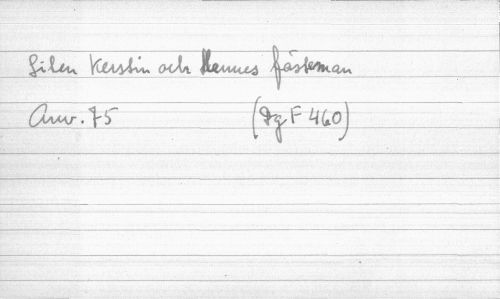 Liten Kerstin och Hennes fästeman
Arw. 75 (Dg F 460)